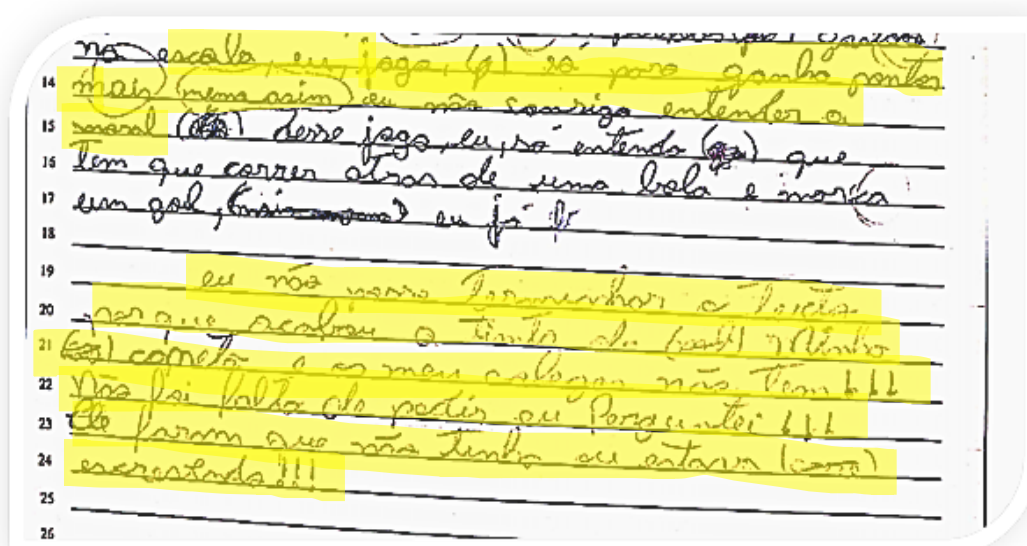 na escola, eu, joga, (p) só para ganha pontos
14 mais (memo asim) eu não consigo entender a
15 moral desse jogo, eu, só entendo que
16 tem que correr atras de uma bola e marca
17 um gol, eu já
18
19 eu não vorro terminhar o texto
20 porque acabou a tinta da minha
21 caneta e os meu colegas não tem !!!
22 Não foi falta de pedir eu Perguntei !!!
23 Ele que não tinha ou estava
24 escrevendo!!!
25
26